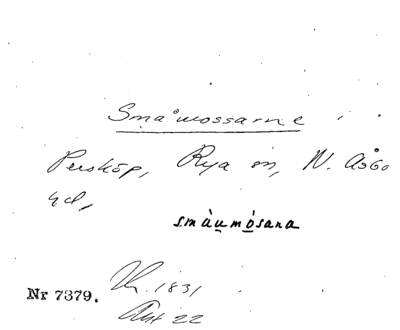 Småmossarne
Perstorp, Rya sn, N. Åsbo
hd,
småumósana
Nr 7379.
1831
22